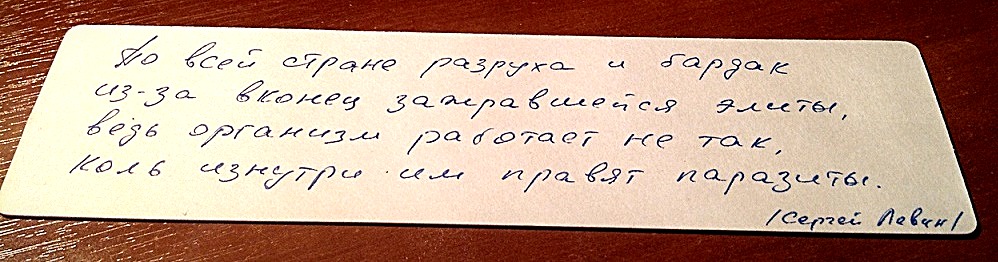 По всей стране разруха и бардак
из-за вконец зажравшейся элиты,
ведь организм работает не так,
коль изнутри им правят паразиты.
/Сергей Левин/